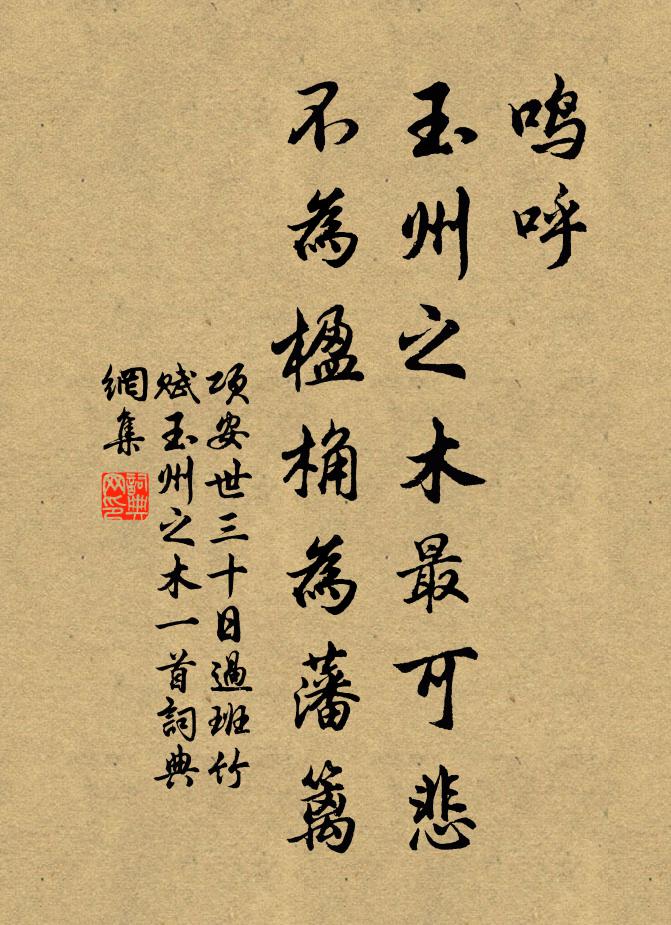 鸣呼
玉州之木最可悲
不為楹桷為藩篱
项安世三十日過班竹
赋玉州之木一首詞典
網集
詞典
网印